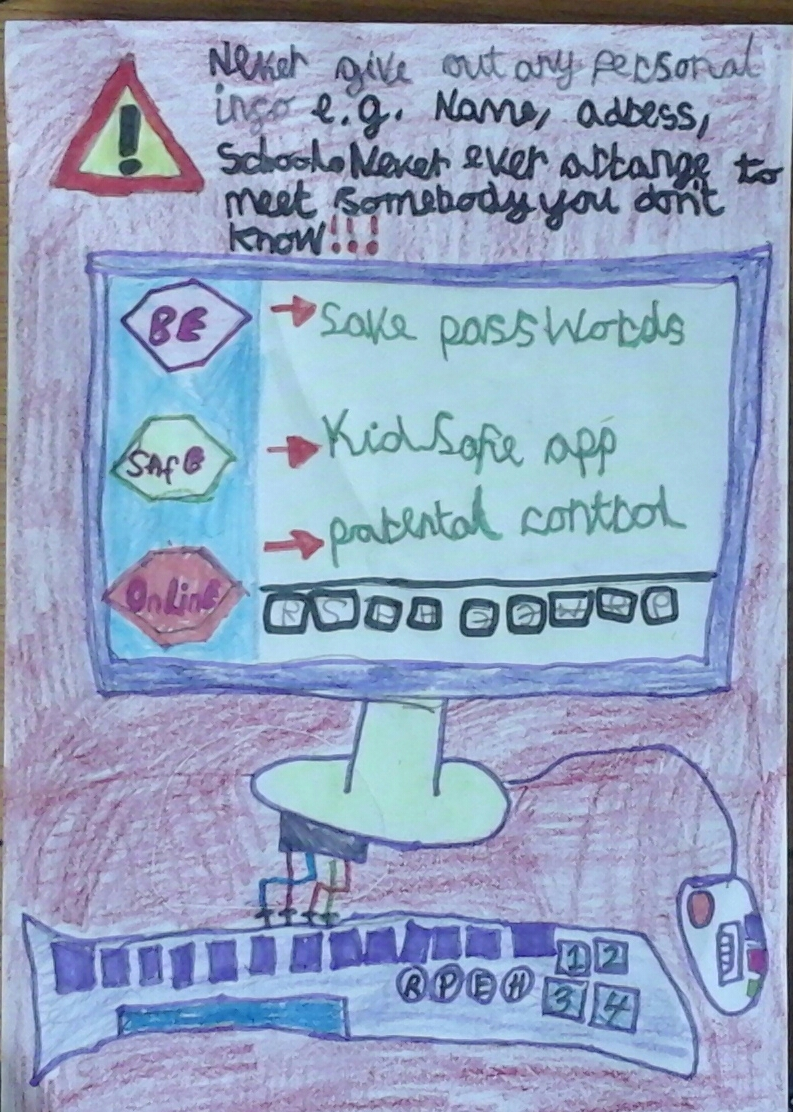 Never give out any personal
info e.g. Name, adress,
School. Never ever arrange to
meet somebody you don't
know!!!
BE → Save passwords
SAfE → KidSafe app
→ parental control
OnLinE
1 2
R P E H 3 4